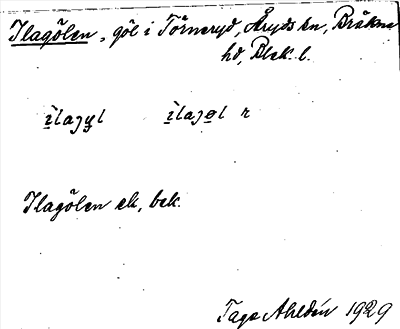 Ilagölen, göl i Törneryd, Åryds sn, Bräkne
hd, Blek. l.
ìlaȷyl ìlaȷol r
Ilagölen ek, bek.
Tage Ahldén 1929